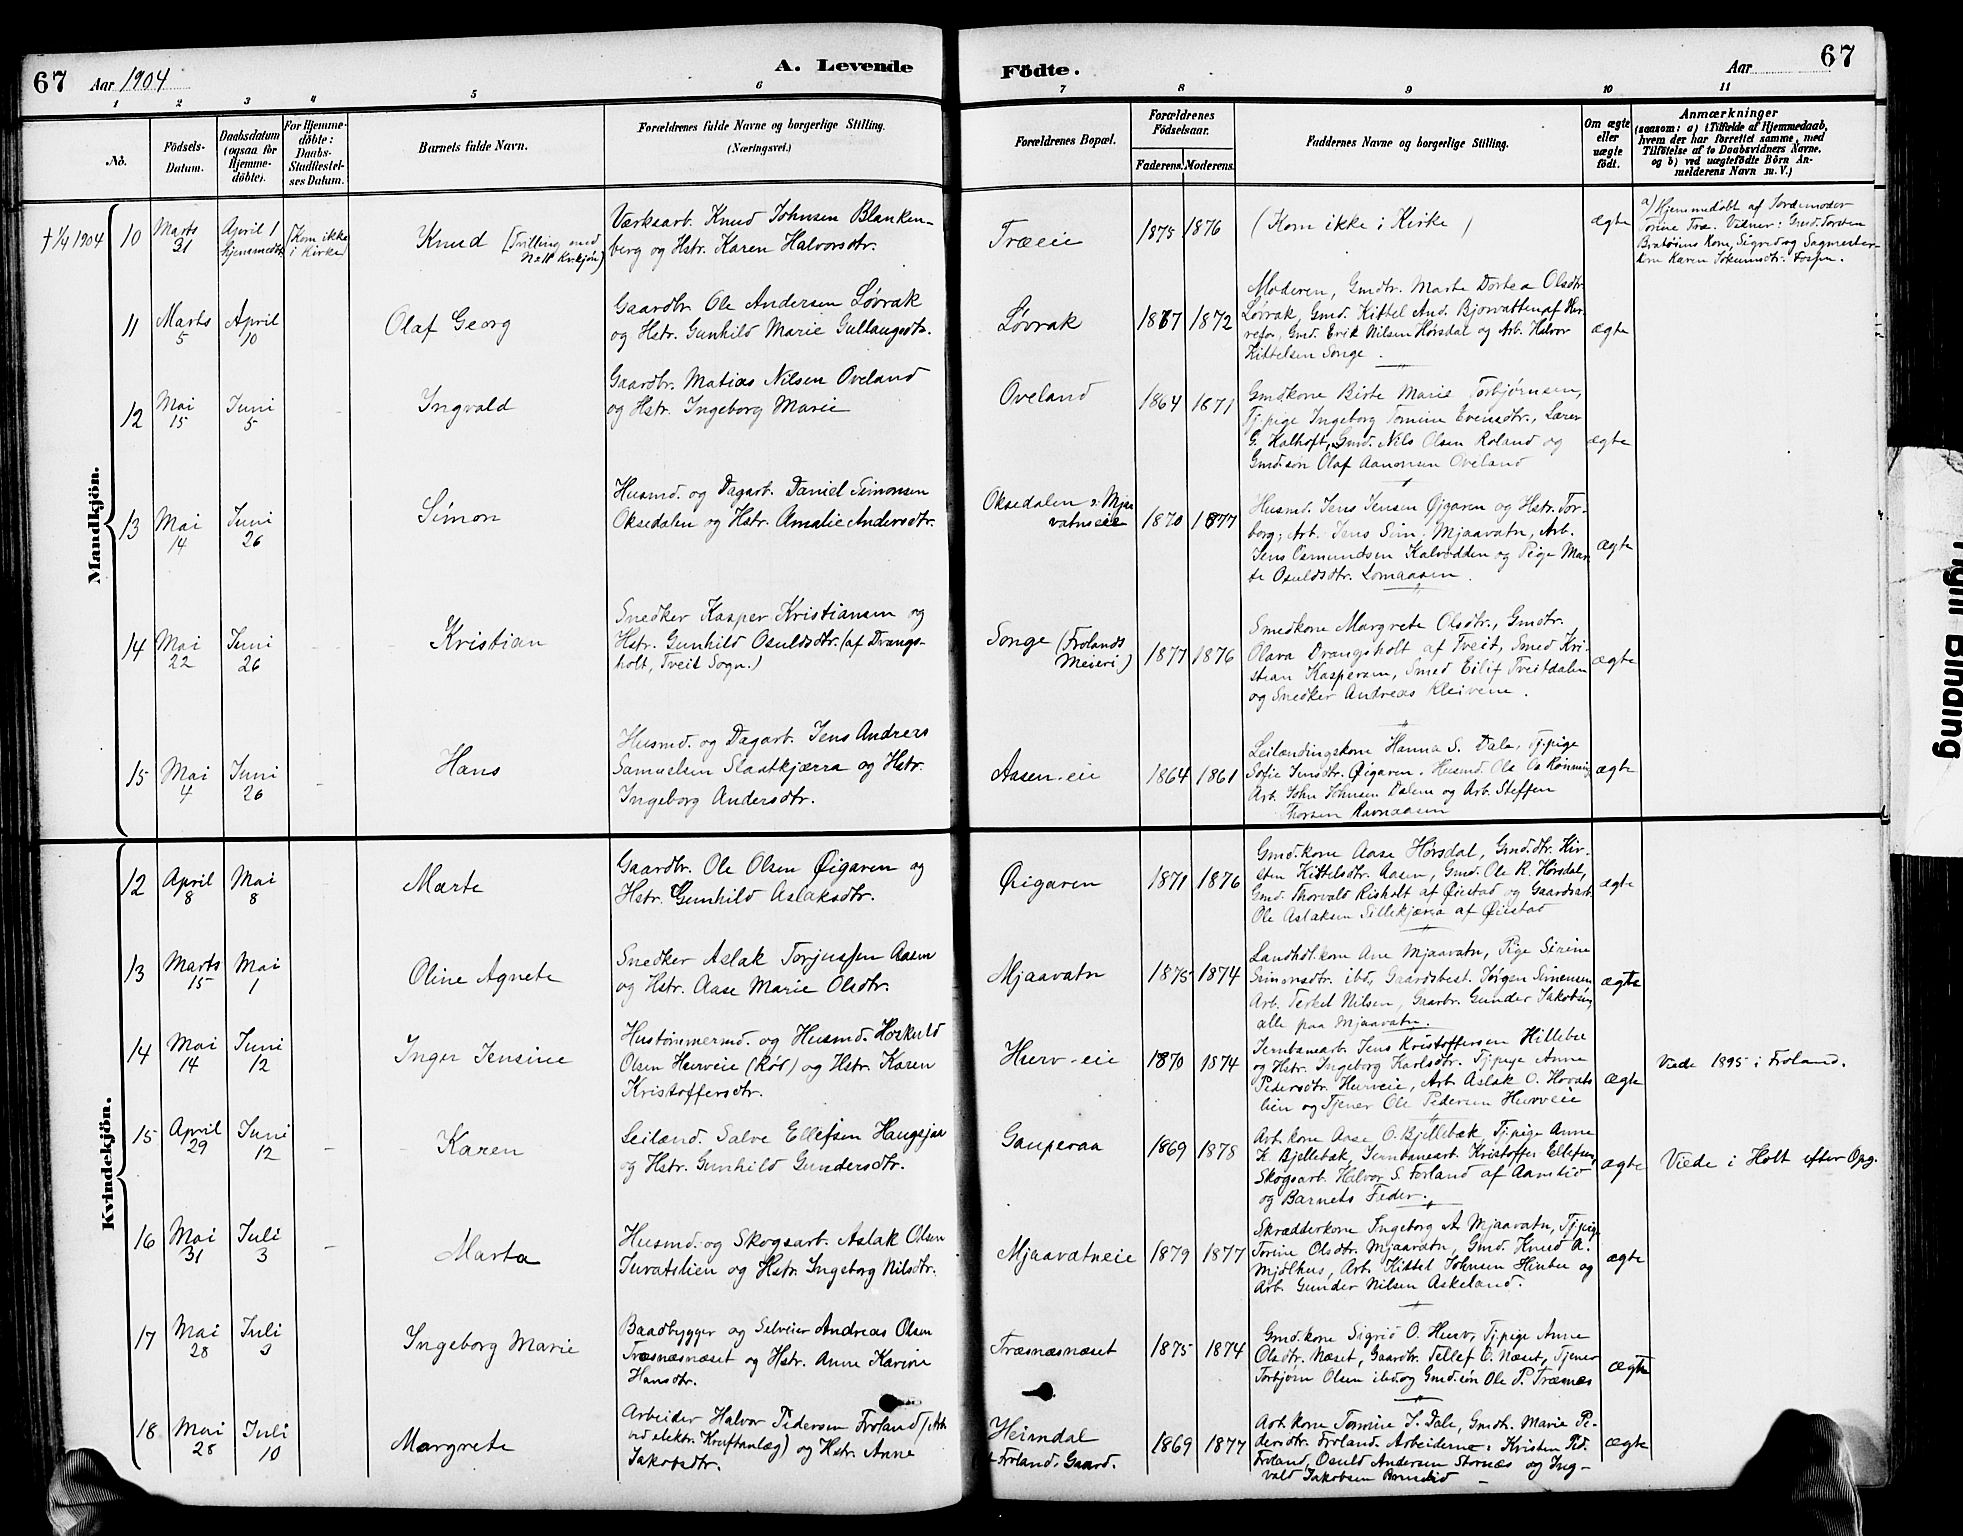 67 Aar 1904 A. Levende Födte. Aar 67
1 2 3 4 5 6 7 8 9 10 11
No.
Födsels-Datum.
Daabsdatum (ogsaa for Hjemme-döbte).
For Hjemme-döbte: Daabs-Stadfæstel-ses Datum.
Barnets fulde Navn.
Forældrenes fulde Navne og borgerlige Stilling.
(Næringsvei.)
Forældrenes Bopæl.
Forældrenes Födselsaar.
Faderens. Moderens.
Faddernes Navne og borgerlige Stilling.
Om ægte eller uægte födt.
Anmærkninger
(saasom: a) i Tilfælde af Hjemmedaab,
hvem der har forrettet samme, med
Tilföielse af to Daabsvidners Navne.
og b) ved uægtefödte Börn An-
melderens Navn m. V.)
Mandkjön.
† 1/4 1904 10 Marts 31 April 1 hjemmedt. (Kom ikke i Kirke)
Knud (Tvilling med No 11 Kv.kjøn)
Værksarb. Knud Johnsen Blanken-
berg og Hstr. Karen Halvorsdtr.
Træeie 1875 1876 (Kom ikke i Kirke) ægte
a) Hjemmedøbt af Jordemoder
Torine Træ. Vidner: Gmd. Torben
Kone, Sigrid og Sagmester-
Karen
11 Marts 5 April 10 Olaf Georg
Gaardbr. Ole Andersen Løvrak
og Hstr. Gunhild Marie Gullaugsdtr.
Løvrak 1867 1872
Moderen, Gmdtr. Marte Dortea Olsdtr.
Løvrak, Gmd. Kittel And. Bjorvatten af Her-
refos, Gmd. Erik Nilsen Hørsdal og Arb. Halvor
Kittelsen Songe. ægte
12 Mai 15 Juni 5 - Ingvald
Gaardbr. Matias Nilsen Oveland
og Hstr. Ingeborg Marie
Oveland 1864 1871
Gmdkone Birte Marie Torbjørnsen,
Tj.pige Ingeborg Tomine Evensdtr., Lærer
G. Kalhoft, Gmd. Nils Olsen Roland og
Gmdsøn Olaf Aanonsen Oveland ægte
13 Mai 14 Juni 26 Simon
Husmd. og Dagarb. Daniel Simonsen
Oksedalen og Hstr. Amalie Andersdtr.
Oksedalen v. Mjaa-
vatneie 1870 1877
Husmd. Jens Jensen Øigaren og Hstr. Tor-
borg, Arb. Jens Sim. Mjaavatn, Arb.
Jens Osmundsen Kalvedden og Pige Mar-
te Osuldsdtr. Lomaasen. ægte
14 Mai 22 Juni 26 - Kristian
Snedker Kasper Kristiansen og
Hstr. Gunhild Osuldsdtr. (af Drangs-
holt, Tveit Sogn.)
Songe (Frolands
Meieri) 1877 1876
Smedkone Margrete Olsdtr., Gmdtr.
Olava Drangsholt af Tveit, Smed Kri-
stian Kaspersen, Smed Eilif Tveitdalen
og Snedker Andreas Kleivene. ægte
15 Mai 4 Juni 26 - Hans
Husmd. og Dagarb. Jens Andreas
Samuelsen Slaatkjærra og Hstr.
Ingeborg Andersdtr.
Aasen-eie 1864 1861
Leilændingskone Hanna S. Dale, Tj.pige
Sofie Jensdtr. Øigaren. Husmd. Ole Rønning,
Arb. John Johnsen Dalen og Arb. Steffen
Thorsen Ravnaasen ægte
Kvindekjön.
12 April 8 Mai 8 Marte
Gaardbr. Ole Olsen Øigaren og
Hstr. Gunhild Aslaksdtr.
Øigaren 1871 1876
Gmd.kone Aase Hørsdal, Gmd.dtr. Kir-
sten Kittelsdtr. Aasen, Gmd. Ole R. Hørsdal,
Gmd. Thorvald Risholt af Øiestad og Gaardsarb.
Ole Aslaksen Sillekjærra af Øiestad ægte
13 Marts 15 Mai 1 Oline Agnete
Snedker Aslak Torjussen Aasen
og Hstr. Aase Marie Olsdtr.
Mjaavatn 1875 1874
Landhdl.kone Ane Mjaavatn, Pige Sirine
Simonsdtr. ibd., Gaardsbest. Jørgen Simonsen,
Arb. Terkel Nilsen, Gaarbr. Gunder Jakobsen,
alle paa Mjaavatn. ægte
14 Mai 14 Juni 12 Inger Jensine
Hustømmermd. og Husmd. Horkuld
Olsen Hurveie (Rød) og Hstr. Karen
Kristoffersdtr.
Hurv-eie 1870 1874
Jernbanearb. Jens Kristoffersen Hillebæ
og Hstr. Ingeborg Karlsdtr. Tj.pige Anne
Pedersdtr. Hurveie, Arb. Aslak O. Hovats
lien og Tjener Ole Pedersen Hurveie ægte
Viede 1895 i Froland.
15 April 29 Juni 12 - Karen
Leilænd. Salve Ellefsen Haugsjaa
og Hstr. Gunhild Gundersdtr.
Gauperaa 1869 1878
Arb.kone Aase O. Bjellebæk, Tj.pige Anne
K. Bjellebæk, Jernbanearb. Kristoffer Ellefsen,
Skogsarb. Halvor S. Forland af Aamlid
og Barnets Fader. ægte
Viede i Holt efter Opg.
16 Mai 31 Juli 3 - Marta
Husmd. og Skogsarb. Aslak Olsen
Juvatslien og Hstr. Ingeborg Nilsdtr.
Mjaavatneie 1879 1877
Skrædderkone Ingeborg A. Mjaavatn, Tj.pige
Torine Olsdtr. Mjaavatn, Gmd. Knud A.
Mjølhus, Arb. Kittel Johnsen Hinbu og
Arb. Gunder Nilsen Askeland. ægte
17 Mai 28 Juli 3 Ingeborg Marie
Baadbygger og Selveier Andreas Olsen
Træsnæsnæset og Hstr. Anne Karine
Hansdtr.
Træsnæsnæset 1875 1874
Gmd.kone Sigrid O. Hurv, Tj.pige Anne
Olsdtr. Næset, Gaardbr. Tellef O. Næset, Tjener
Torbjørn Olsen ibd. og Gmd.søn Ole P. Træsnæs ægte
18 Mai 28 Juli 10 Margrete
Arbeider Halvor Pedersen Froland (Arb.
ved elektr. Kraftanlæg) og Hstr. Anne
Jakobsdtr.
Heimdal
Froland. Gaard. 1869 1877
Arb.kone Tomine J. Dale, Gmdtr. Marie Pe-
dersdtr. Froland. Arbeiderne: Kristen Ped.
Froland, Osuld Andersen Stornæs og Ing-
vald Jakobsen ægte
Binding